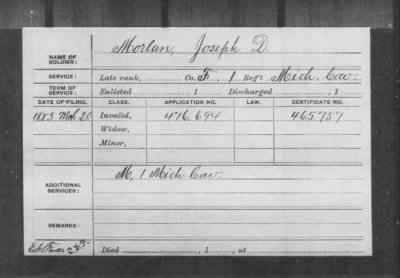 NAME OF SOLDIER: Morlan, Joseph D.
SERVICE: Late rank, Co. F, 1 Reg't Mich. Cav.
TERM OF SERVICE: Enlisted , 1 Discharged , 1
DATE OF FILING. CLASS. APPLICATION NO. LAW. CERTIFICATE NO.
1883 Mch 20 Invalid, 476.694 465.757
Widow,
Minor,
ADDITIONAL SERVICES: M, 1 Mich Cav.
REMARKS:
Died , 1 , at